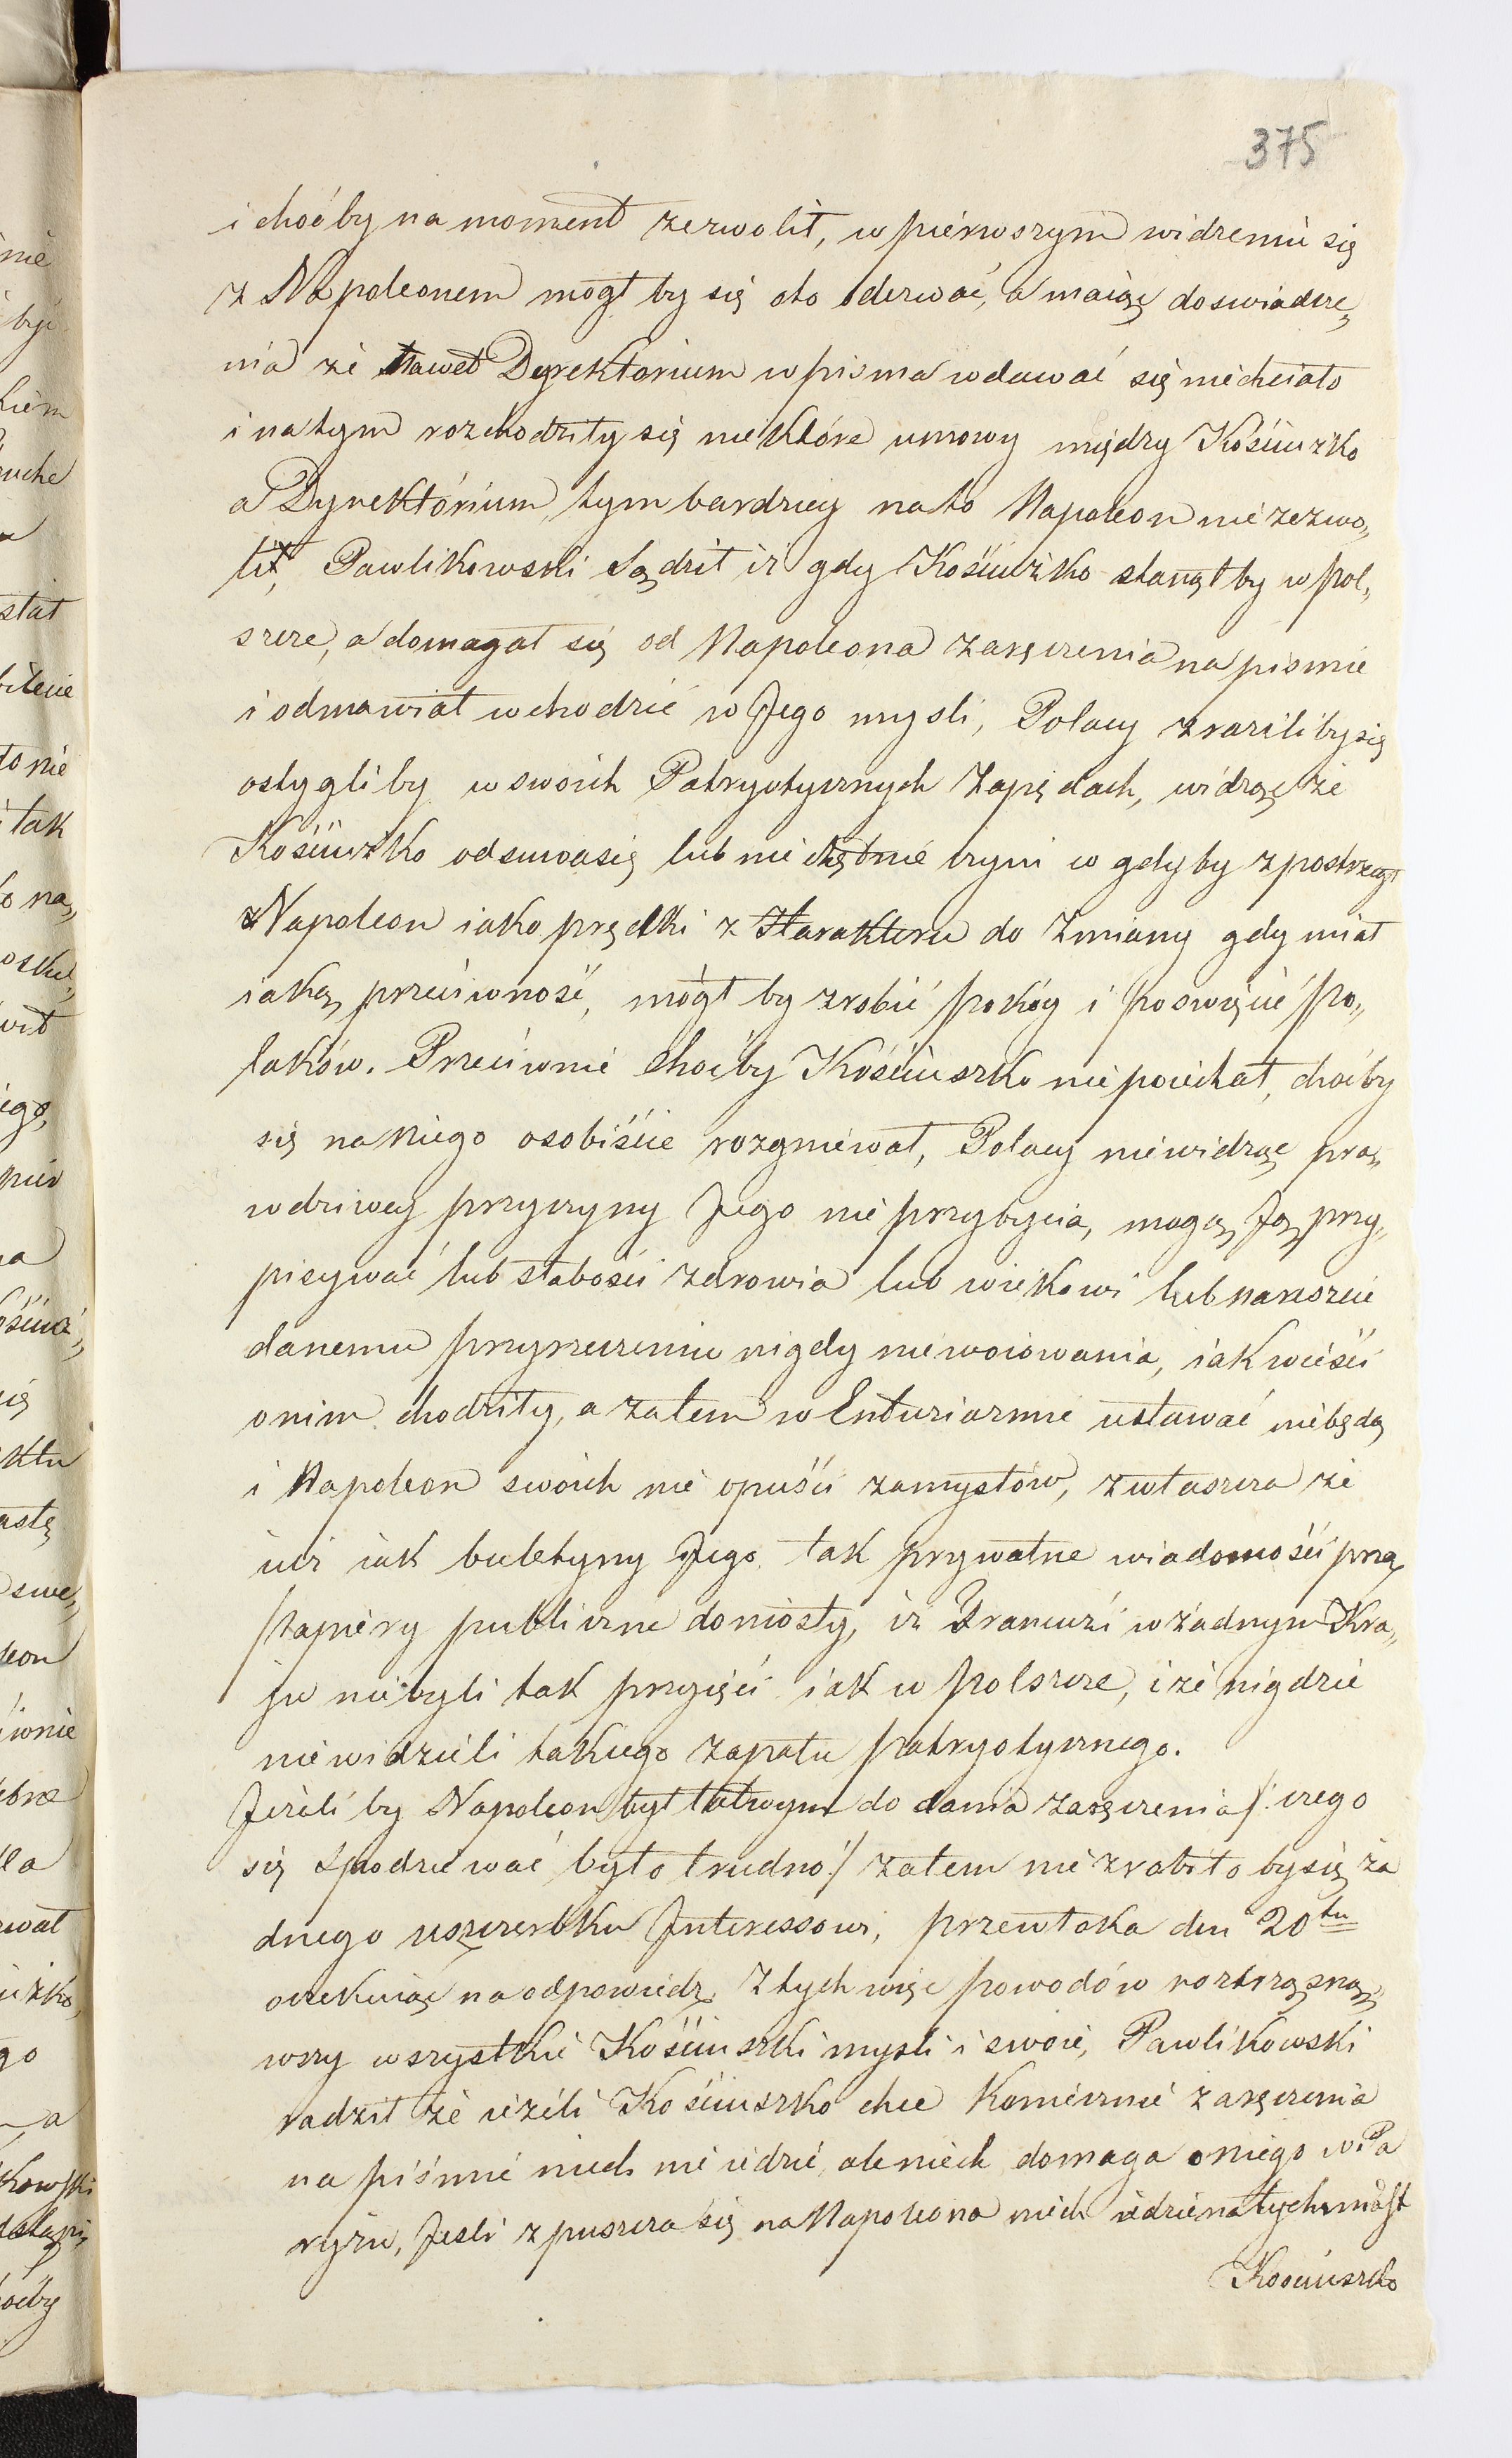 375
i choćby na moment zezwolił, w pierwszym widzeniu się
z Napoleonem mógł by się oto oderwać, a maiąc doswiadcze„
nia że nawet Dyrektorium w pisma wdawać się niechciało
i na tym rozchodziły się niektóre umowy między Kościuszko
a Dyrektórium, tym bardziey na to Napoleon nie zezwo„
lił, Pawlikowski Sądził iż gdy Kościuszko stanął by w Pol„
szcze, a domagał się od Napoleona zaręczenia na pismie
i odmawiał wchodzić w Jego mysli, Polacy zrazili by się
ostygli by w swoich Patryotycznych Zapędach, widząc że
Kościuszko odsuwa się lub nie chętnie czyni co gdy by zpostrzegł
Napoleon iako prędki z Harakteru do Zmiany gdy miał
iaką przeciwność, mógł by zrobić pokóy i poswięcić Po„
laków. Przeciwnie choćby Kościuszko nie poiechał, choćby
się na niego osobiście rozgniewał, Polacy nie widząc pra„
wdziwey przyczyny Jego nie przybycia, mogą Ją przy„
pisywać lub słabości zdrowia lub wiekowi lub nareszcie
danemu przyrzeczeniu nigdy nie woiowania, iak wieści
o nim chodziły, a zatem w Entuziazmie ustawać nie będą
i Napoleon swoich nie opuści zamysłów, zwłaszcza że
iuż iak buletyny Jego tak prywatne wiadomości przez
papiery publiczne doniosły, iż Francuzi w żadnym Kra„
ju nie byli tak przyięci iak w Polszcze, i że nigdzie
nie widzieli takiego zapału patryotycznego.
Jeżeli by Napoleon był łatwym do dania zaręczenia /: czego
się spodziewać było trudno :/ zatem nie zrobiło by się ża
dnego uszczerbku Jnteressowi, przewłoka dni 20tu
oczekuiąc na odpowiedz. Z tych więc powodów roztrząsną„
wszy wszystkie Kościuszki mysli i swoie, Pawlikowski
radził że ieżeli Kościuszko chce Koniecznie zaręczenia
na piśmie niech nie iedzie, ale niech domaga o niego w Pa
ryżu, Jesli zpuszcza się na Napoleona niech iedzie natychmiast
Kosciuszko